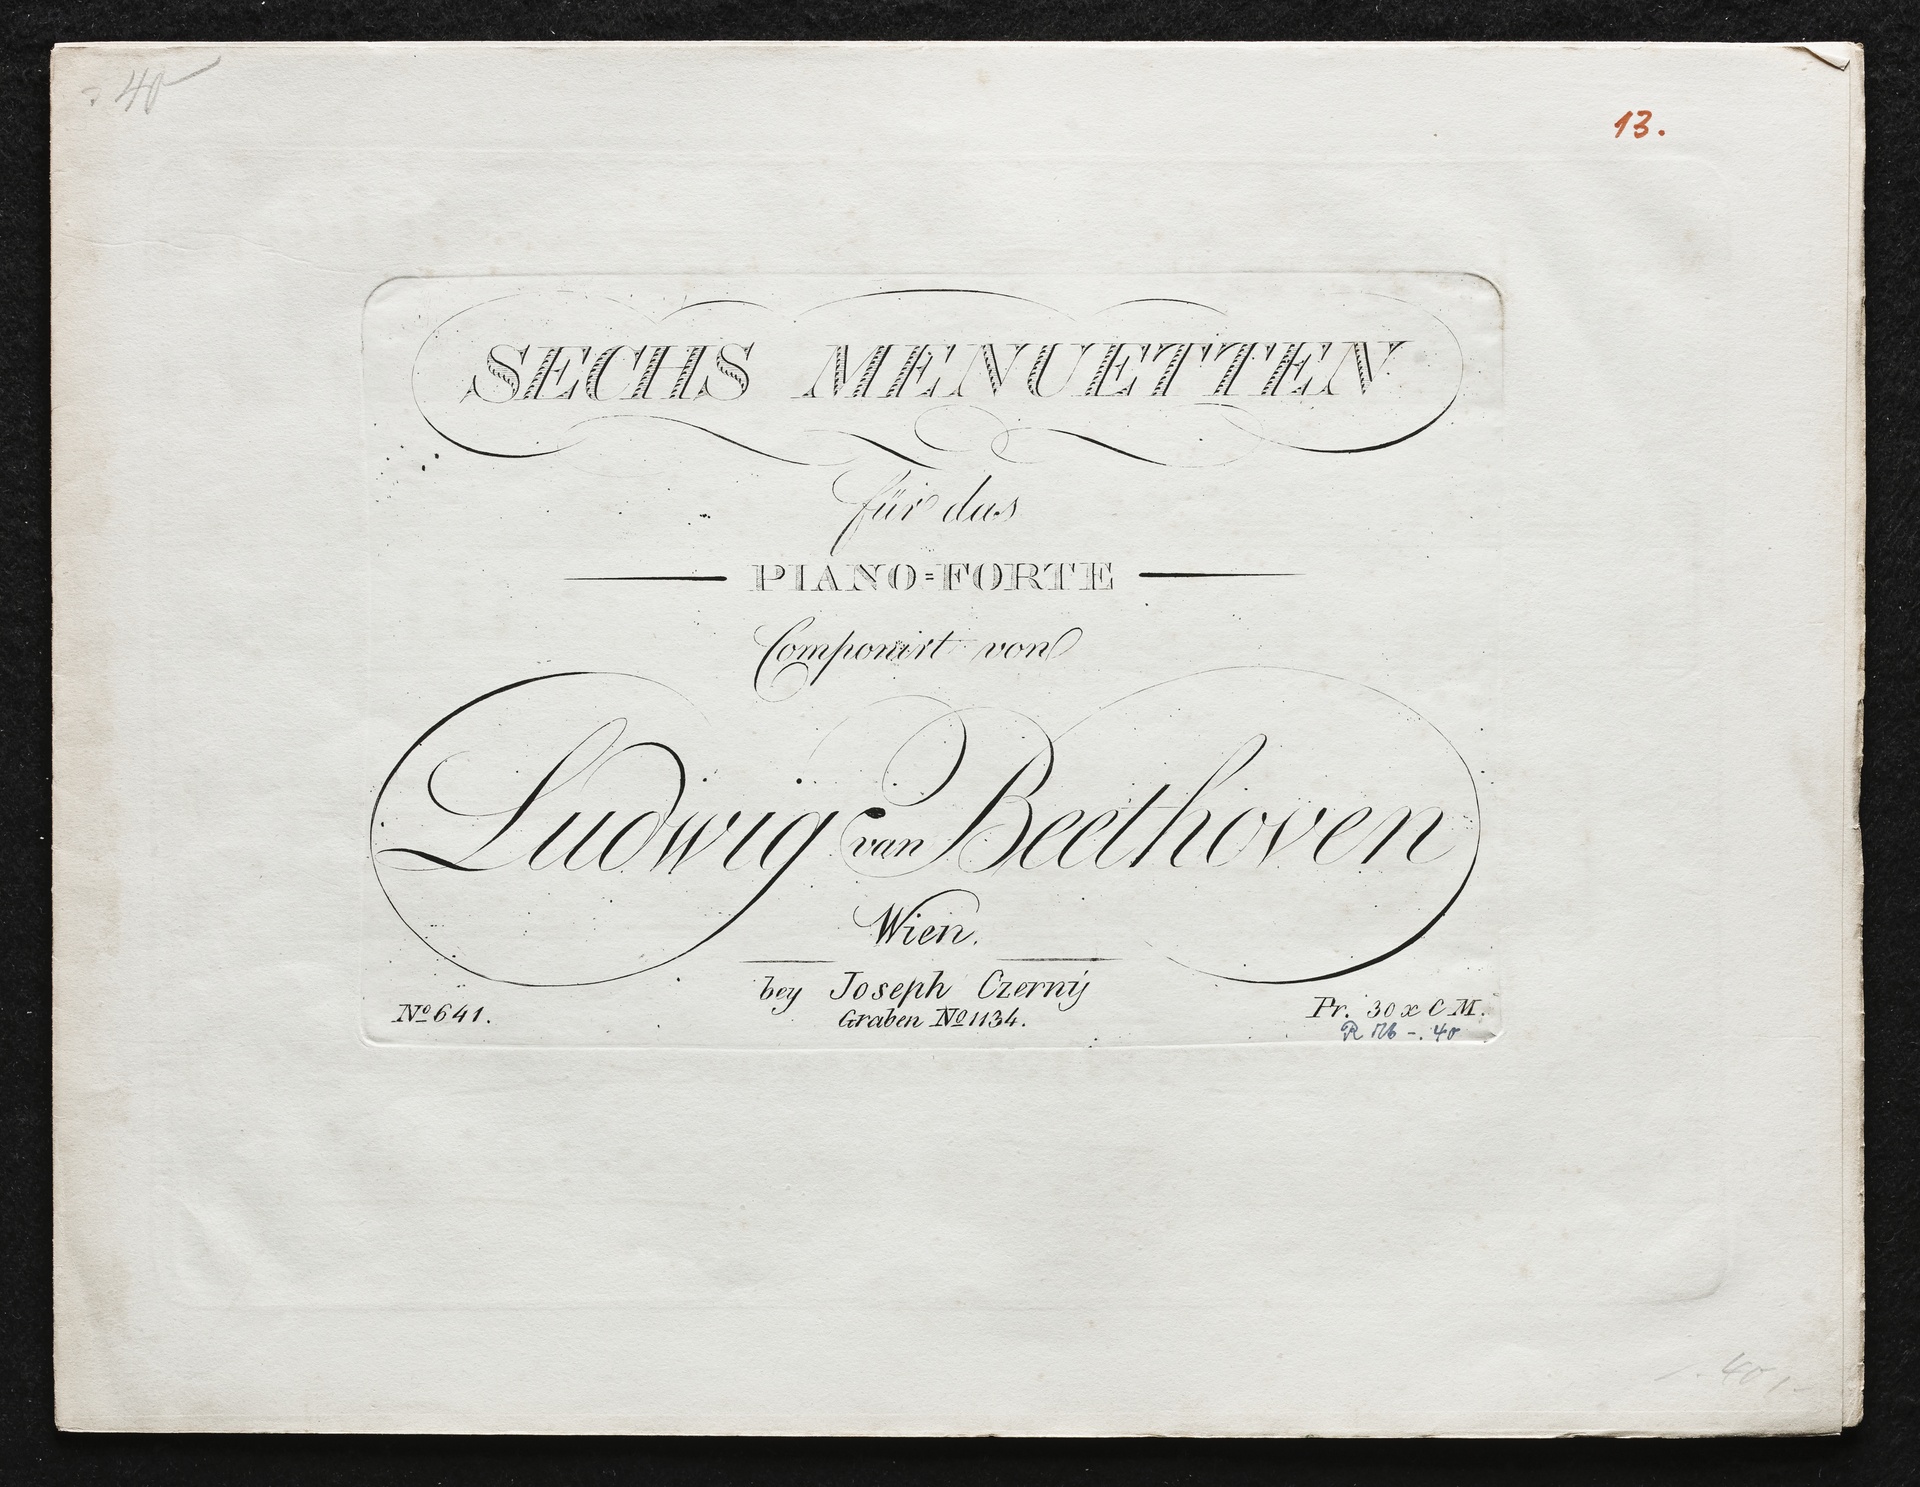 40
13.
SECHS MENUETTEN
für das
PIANO=FORTE
Componirt von
Ludwig van Beethoven
Wien.
bey Joseph Czerný
Graben No 1134.
No 641.
Pr. 30 x C M.
-. 40
40,-